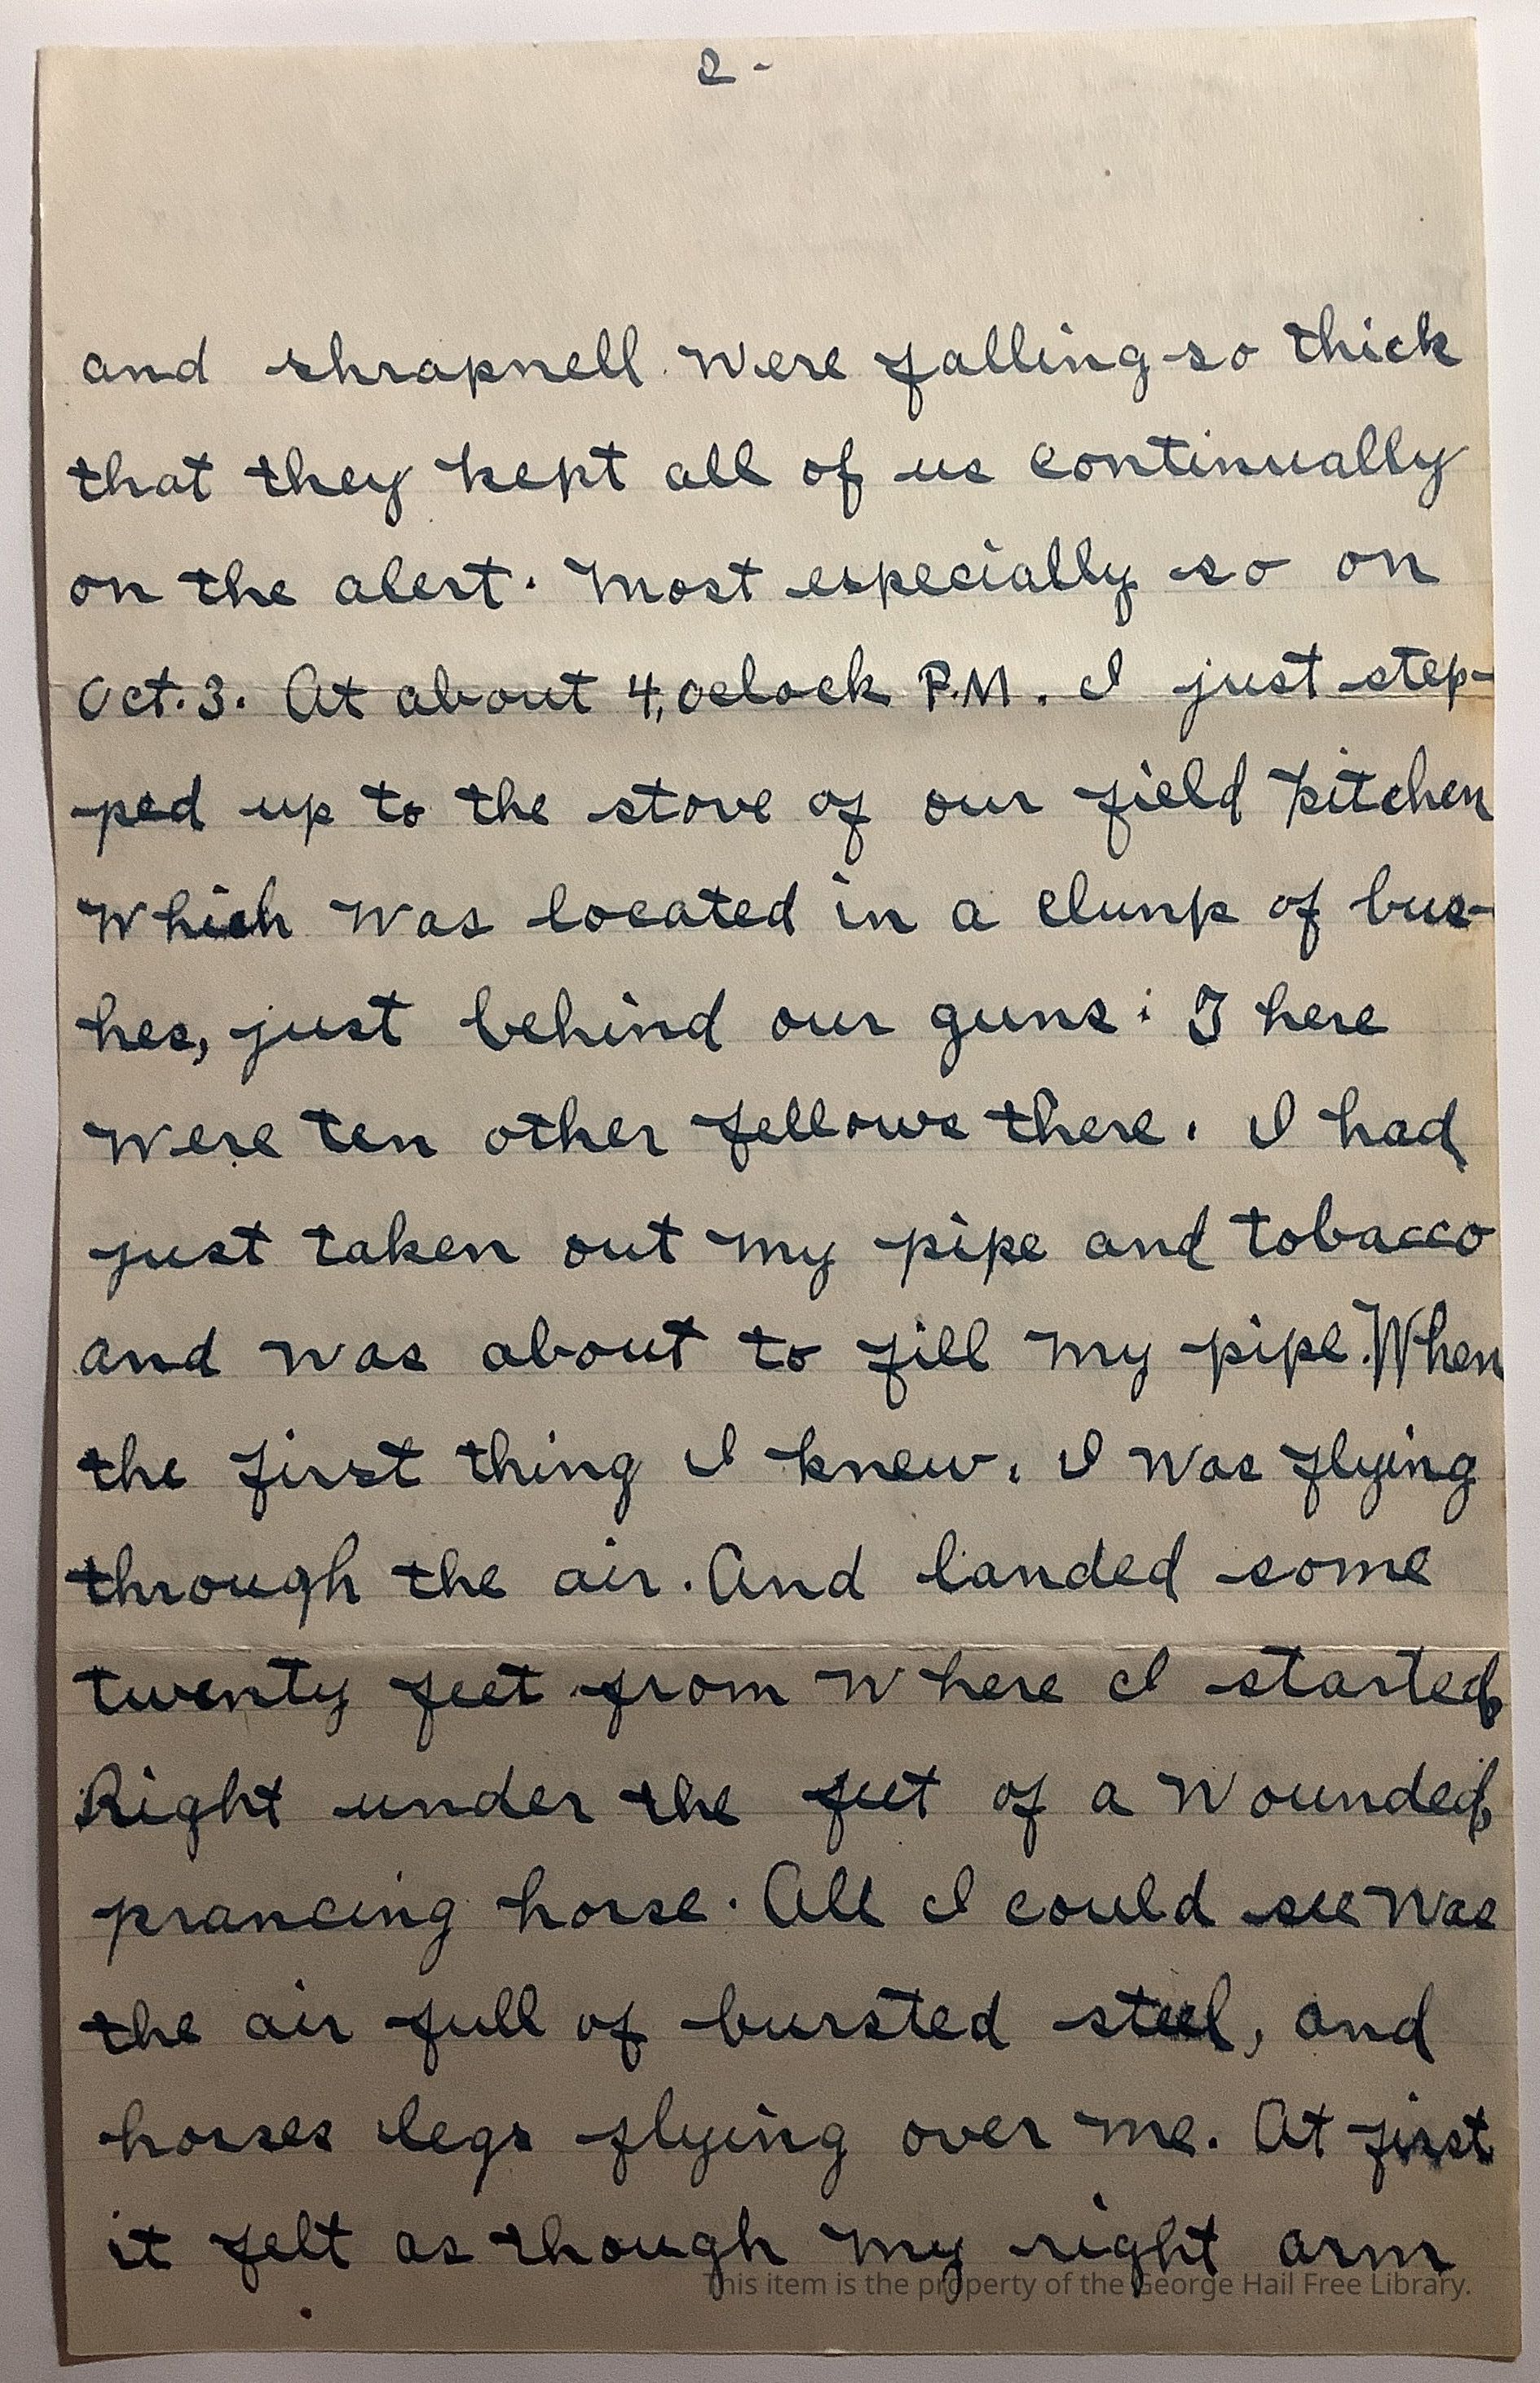 2-
and shrapnell were falling so thick
that they kept all of us continually
on the alert. Most especially so on
Oct. 3. At about 4, Oclock P.M. I just step-
ped up to the stove of our field kitchen
Which Was located in a clump of bus-
hes, just behind our guns. There
Were ten other fellows there. I had
just taken out my pipe and tobacco
and was about to fill my pipe. When
the first thing I knew. I was flying
through the air. And landed some
twenty feet from where I started,
Right under the feet of a Wounded,
prancing horse. All I could see Was
the air full of bursted steel, and
horses legs flying over me. At first
it felt as though my right arm
This item is the property of the George Hail Free Library.